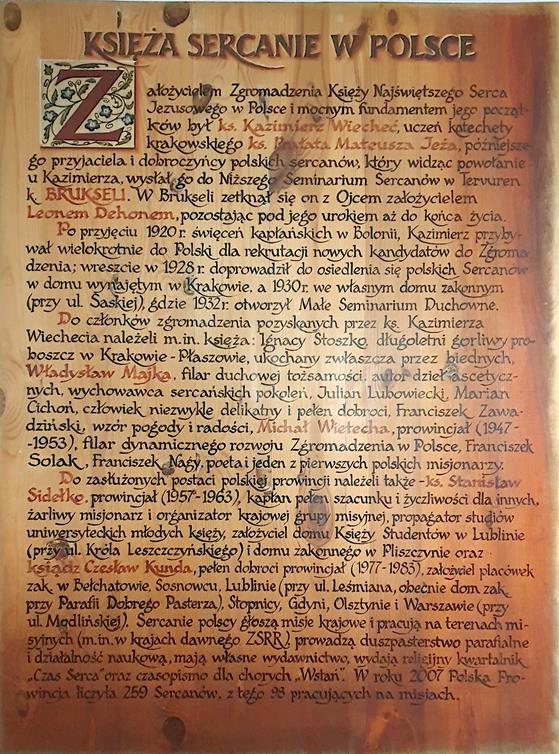 KSIĘŻA SERCANIE W POLSCE
Założycielem Zgromadzenia Księży Najświętszego Serca
Jezusowego w Polsce i mocnym fundamentem jego począt-
ków był ks. Kazimierz Wiecheć, uczeń katechety
krakowskiego ks. Prałata Mateusza Jeża, późniejsze-
go przyjaciela i dobroczyńcy polskich sercanów, który widząc powołanie
u Kazimierza, wysłał go do Niższego Seminarium Sercanów w Tervuren
k. BRUKSELI. W Brukseli zetknął się on z Ojcem założycielem
Leonem Dehonem, pozostając pod jego urokiem aż do końca życia.
Po przyjęciu 1920 r. święceń kapłańskich w Bolonii, Kazimierz przyby-
wał wielokrotnie do Polski dla rekrutacji nowych kandydatów do Zgroma-
dzenia; wreszcie w 1928 r. doprowadził do osiedlenia się polskich Sercanów
w domu wynajętym w Krakowie, a 1930 r. we własnym domu zakonnym
(przy ul. Saskiej), gdzie 1932 r. otworzył Małe Seminarium Duchowne.
Do członków zgromadzenia pozyskanych przez ks. Kazimierza
Wiechecia należeli m.in. księża: Ignacy Stoszko, długoletni gorliwy pro-
boszcz w Krakowie-Płaszowie, ukochany zwłaszcza przez biednych,
Władysław Majka, filar duchowej tożsamości, autor dzieł ascetycz-
nych, wychowawca sercańskich pokoleń, Julian Lubowiecki, Marian
Cichoń, człowiek niezwykle delikatny i pełen dobroci, Franciszek Zawa-
dziński, wzór pogody i radości, Michał Wietecha, prowincjał (1947-
-1953), filar dynamicznego rozwoju Zgromadzenia w Polsce, Franciszek
Solak, Franciszek Nagy, poeta i jeden z pierwszych polskich misjonarzy.
Do zasłużonych postaci polskiej prowincji należeli także - ks. Stanisław
Sidełko, prowincjał (1957-1963), kapłan pełen szacunku i życzliwości dla innych,
żarliwy misjonarz i organizator krajowej grupy misyjnej, propagator studiów
uniwersyteckich młodych księży, założyciel domu Księży Studentów w Lublinie
(przy ul. Króla Leszczczyńskiego) i domu zakonnego w Pliszczynie oraz
ksiądz Czesław Kunda, pełen dobroci prowincjał (1977-1983), założyciel placówek
zak. w Bełchatowie, Sosnowcu, Lublinie (przy ul. Leśmiana, obecnie dom zak.
przy Parafii Dobrego Pasterza), Stopnicy, Gdyni, Olsztynie i Warszawie (przy
ul. Modlińskiej). Sercanie polscy głoszą misje krajowe i pracują na terenach mi-
syjnych (m.in. w krajach dawnego ZSRR), prowadzą duszpasterstwo parafialne
i działalność naukową, mają własne wydawnictwo, wydają religijny kwartalnik
„Czas Serca" oraz czasopismo dla chorych „Wstań". W roku 2007 Polska Pro-
wincja liczyła 259 Sercanów, z tego 98 pracujących na misjach.